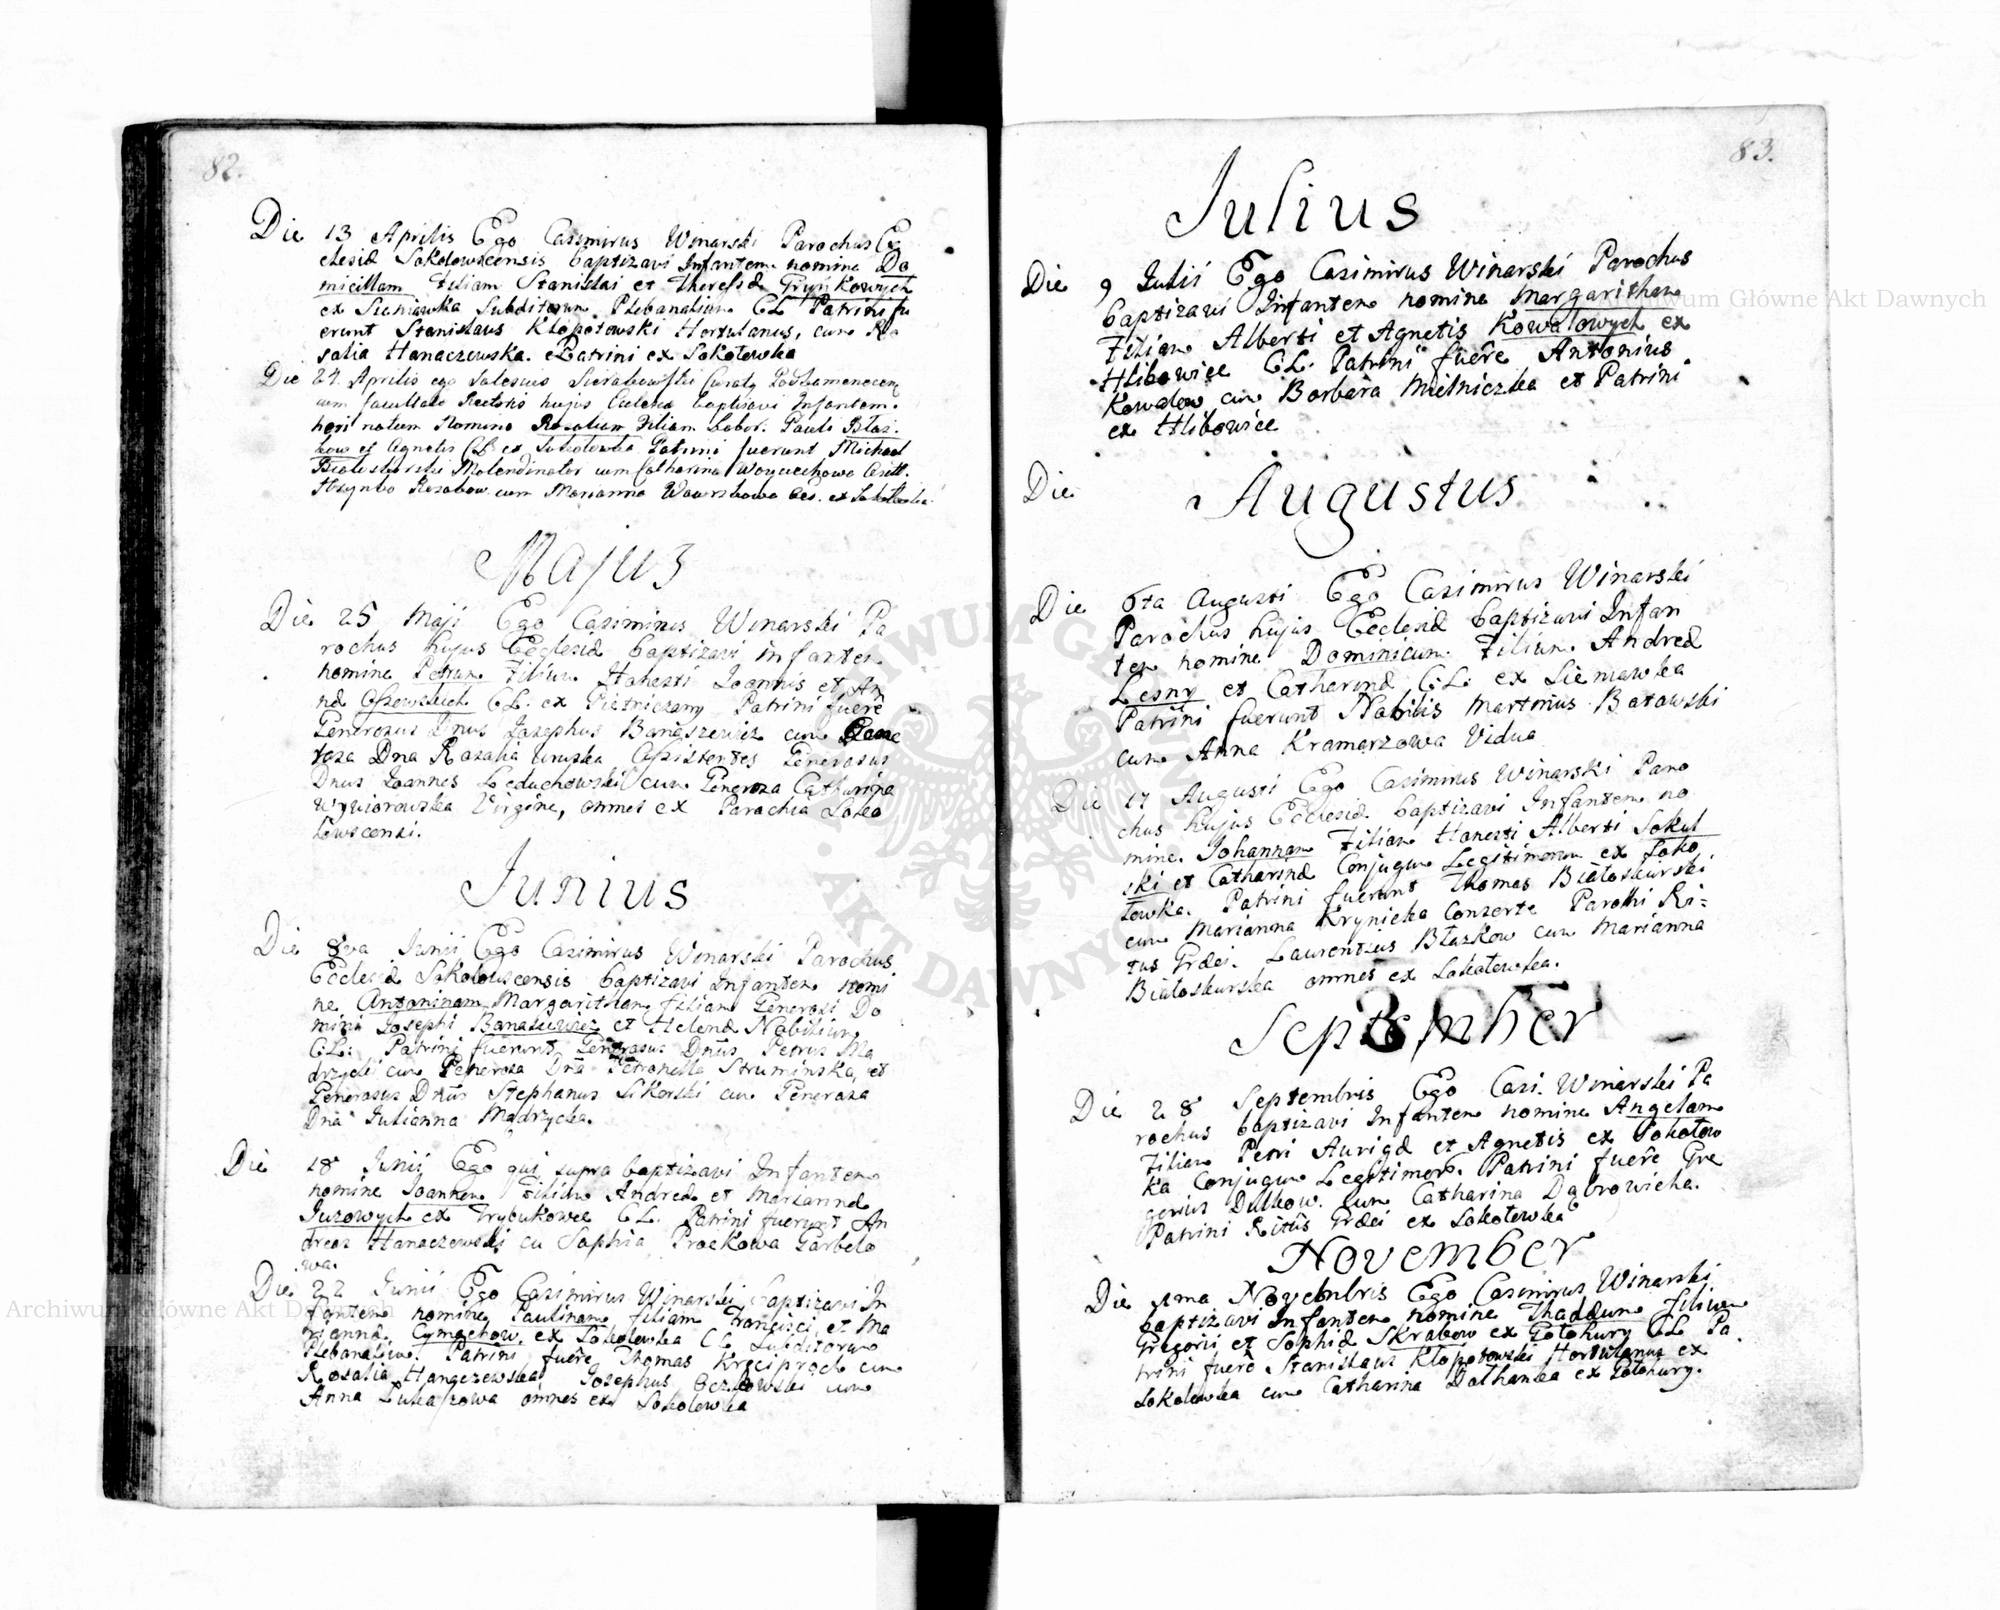 82.
Die 13 Aprilis Ego Casimirus Winarski Parochus Ec
clesiæ Sokolowscensis baptizavi Infantem nomine Do
micillam Filiam Stanislai et Theressæ Gryńkowych
ex Sieniawka Subditorum Plebanalium CL Patrini fu
erunt Stanislaus Kłopotowski Hortulanus, cum Ro
salia Hanaczewska. Patrini ex Sokołowka
Die 24 Aprilis ego Salesius
cum facultate Rectoris hujus Ecclesiæ baptisavi Infantem
heri natum Nomine Rosalium Filiam Labor. Pauli Błaz.
kow et Agnetis CL ex Sokołowka Patrini fuerunt Michael
Białoskurski Molendinator cum Catharina Woyciechowa
Hrynko Rozabow cum Marianna Wawrzkowa ex Sokołowka
Majus
Die 25 Maji Ego Casimirus Winarski Pa
rochus hujus Ecclesiæ baptizavi infantem
nomine Petrum Filium Honesti Joannis et An
næ CL. ex Pietniczany Patrini fuere
Generosus Dnus Josephus Banaszewicz cum Gene
roza Dna Rozalia Uruska Assistentes Generosus
Dnus Joannes Leduchowski cum Generoza Catharina
Wywiorowska Virgine, omnes ex Parochia Soko
lowscensi.
Junius
Die 8va Junii Ego Casimirus Winarski Parochus
Ecclesiæ Sokolowscensis baptizavi Infantem nomi
ne Antoninam Margaritham filiam Generosi Do
mini Josephi Banasiewicz et Helenæ Nobilium
CL: Patrini fuerunt Generosus Dnus Petrus Mą
drzycki cum Generoza Dna Petronella Struminska, et
Generosus Dnus Stephanus Sikorski cum Generoza
Dna Julianna Mądrzycka.
Die 18 Junii Ego qui supra baptizavi Infantem
nomine Joannem Filium Andreæ et Marzannæ
Juzowych ex Trybukowce CL. Patrini fuerunt An
dreas Hanaczewski cu Sophia Prockowa Garbelo
wa.
Die 22 Junii Ego Casimirus Winarski baptizavi In
fantem nomine Paulinam filiam Francisci et Ma
riannæ Cymochow ex Sokolowka CL Subditorum
Plebanalium. Patrini fuere Thomas Kręciproch cum
Rozalia Hanaczewska, Josephus Oczkowski cum
Anna Lukaszowa omnes ex Sokołowka
83.
Julius
Die 9 Julii Ego Casimirus Winarski Parochus
baptizavi Infantem nomine Margaritham
Filiam Alberti et Agnetis Kowalowych ex
Hlibowice CL. Patrini fuere Antonius
Kowalow cum Barbara Mielniczka et Patrini
ex Hlibowice
Die Augustus
Die 6ta Augusti Ego Casimirus Winarski
Parochus hujus Ecclesiæ baptizavi Infan
tem nomine Dominicum Filium Andreæ
Lesny et Catharinæ CL: ex Sieniawka
Patrini fuerunt Nobilis Martinus Batowski
cum Anna Kramarzowa Vidua
Die 17 Augusti Ego Casimirus Winarski Paro
chus hujus Ecclesiæ baptizavi Infantem no
mine Johannam Filiam Honesti Alberti Sokul
ski et Catharinæ Conjugum Legitimorum ex Soko
łowka. Patrini fuerunt Thomas Białoskurski
cum Marianna Krynicka Consorte Parochi Ri=
tus Græci. Laurentius Błazkow cum Marianna
Białoskurska omnes ex Sokołowka.
September
Die 28 Septembris Ego Casi. Winarski Pa
rochus baptizavi Infantem nomine Angelam
Filiam Petri Aurigæ et Agnetis ex Sokołow
ka Conjugum Legitimorum. Patrini fuere Gre
gorius Dulkow. cum Catharina Dąbrowicka.
Patrini Ritus Græci ex Sokołowka
November
Die 1ma Novembris Ego Casimirus Winarski
baptizavi Infantem nomine Thaddeum filium
Gregorii et Sophiæ Skrabow ex Gołohury CL Pa
trini fuere Stanislaus Kłopotowski Hortulanus ex
Sokolowka cum Catharina Dolhanka ex Gołohury.
Archiwum Główne Akt Dawnych
Archiwum Główne Akt Dawnych
ARCHIWUM GŁÓWNE · AKT DAWNYCH ·